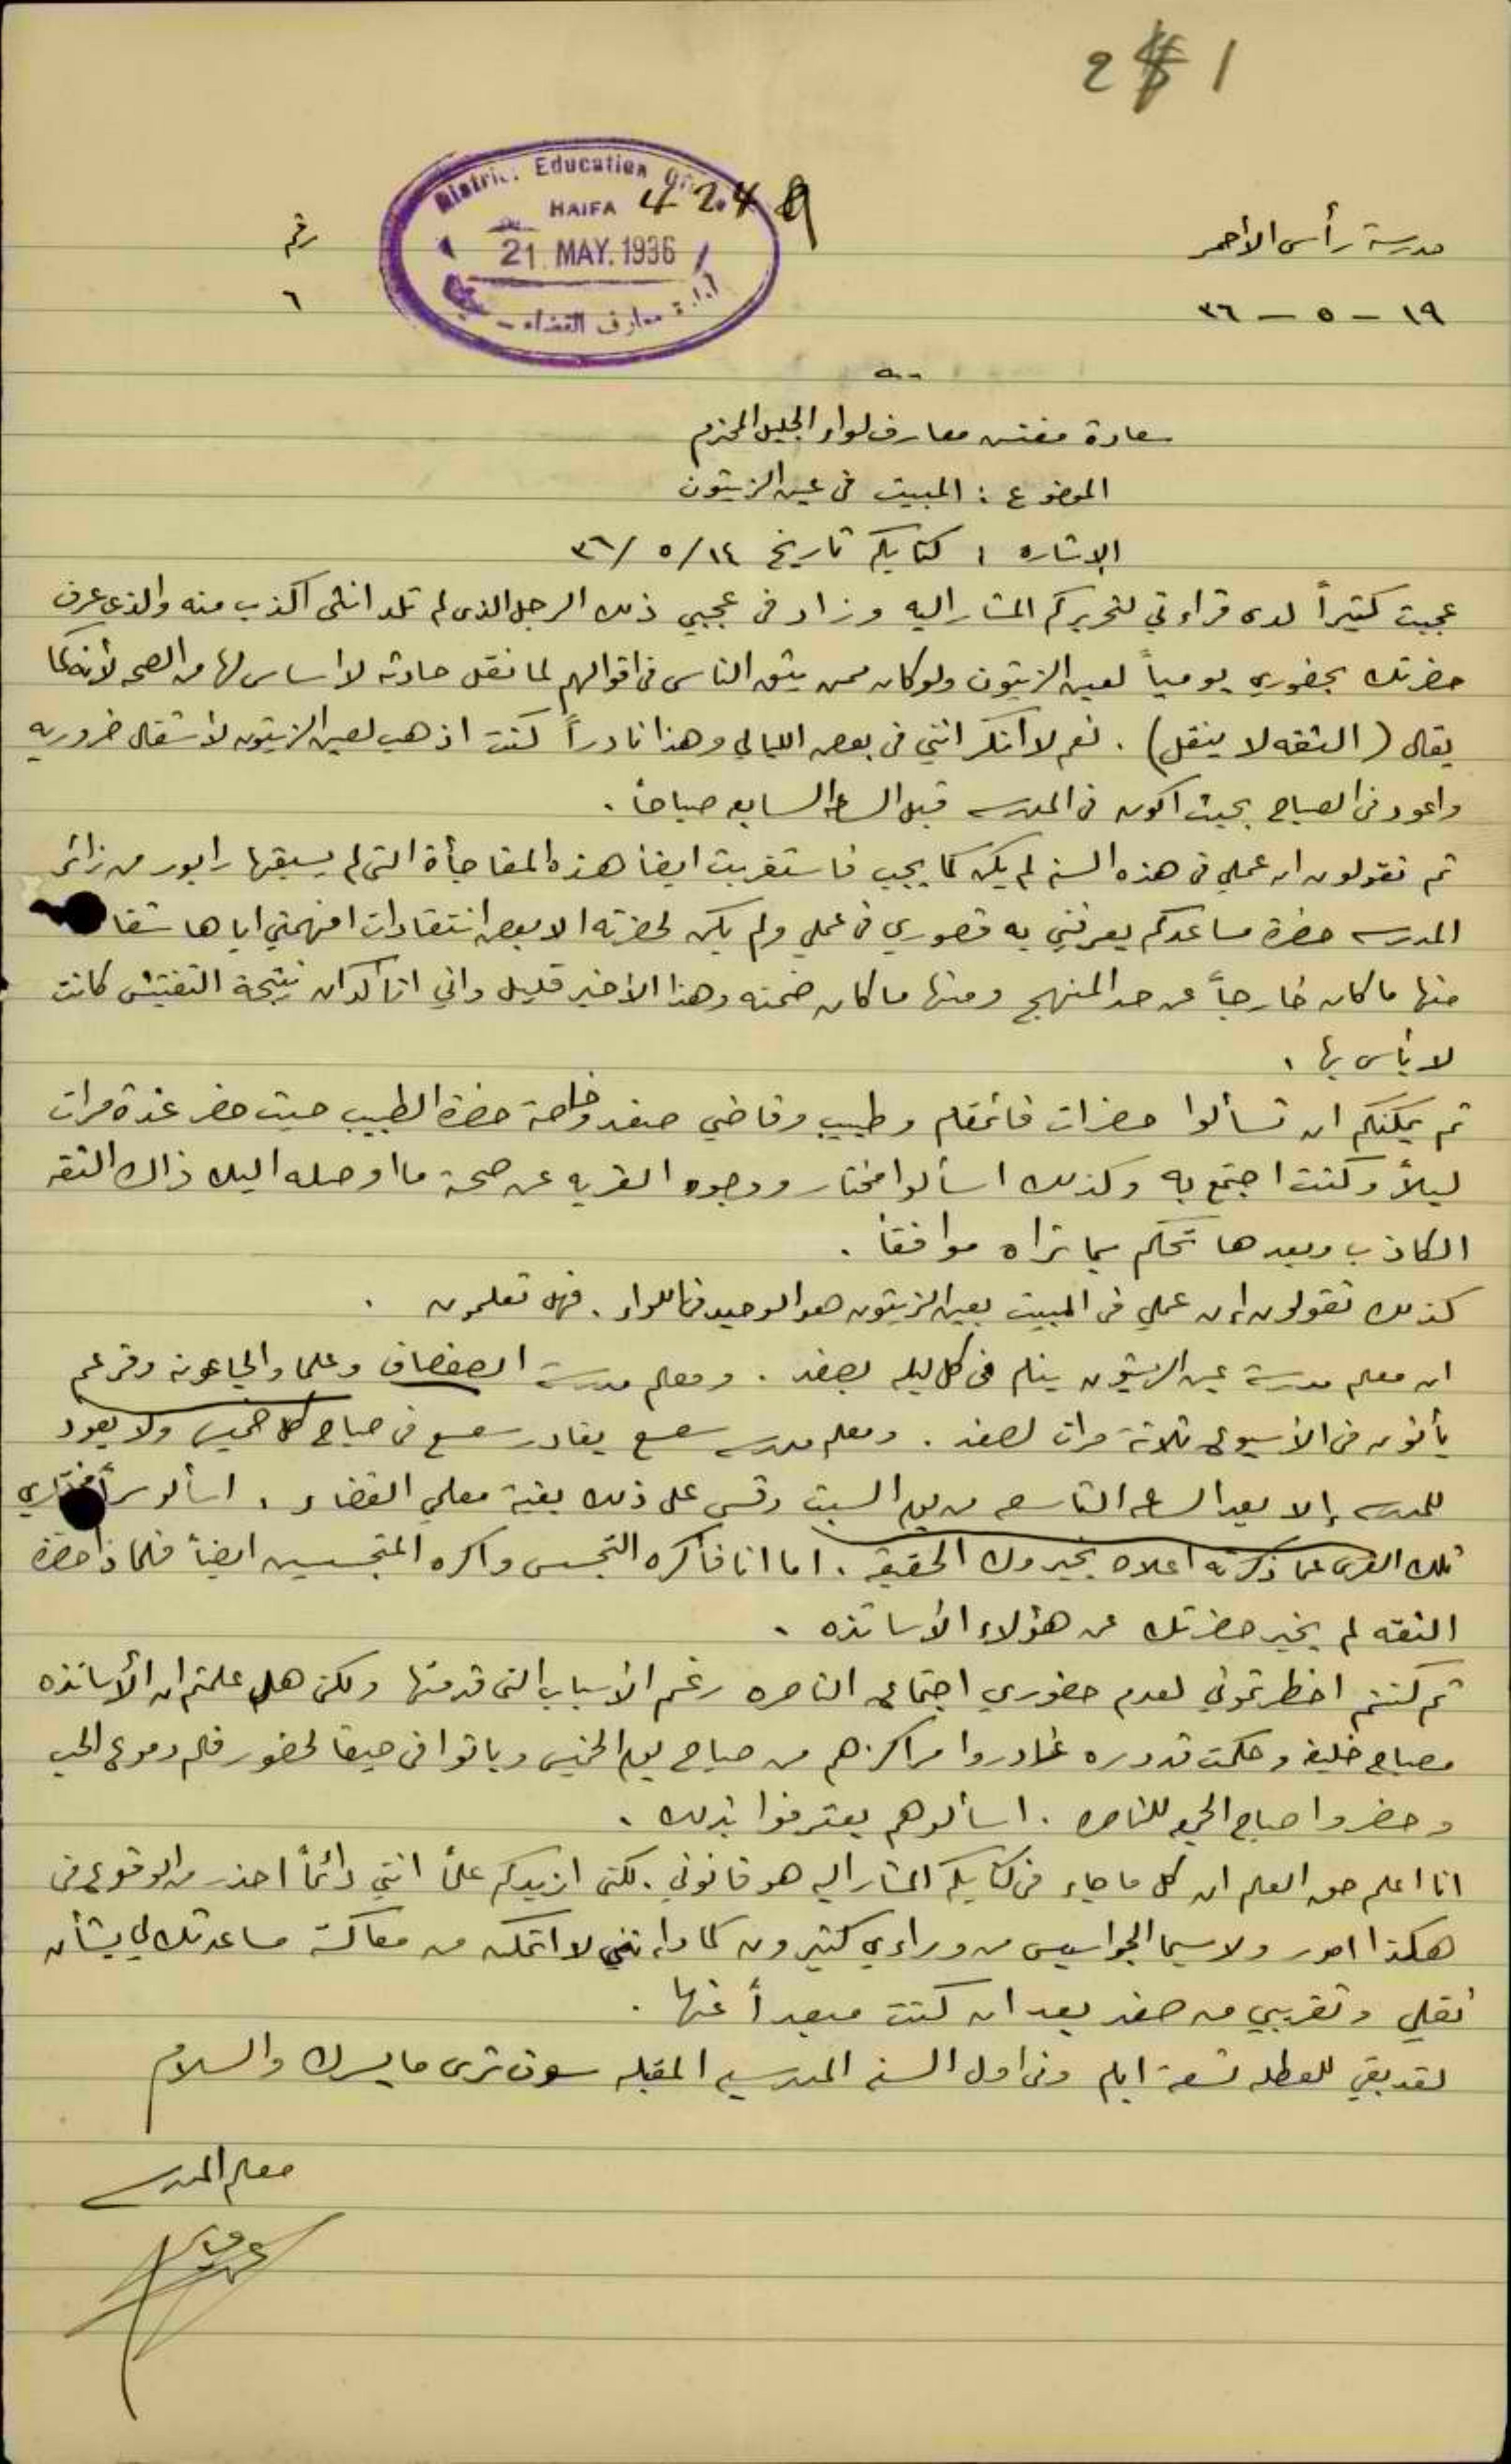 2 1
District Education Office
HAIFA 4249
21 MAY. 1936
ادارة معارف القضاء
مدرسة رأس الاحمر
رقم
١٩ – ٥ – ٣٦
٦
سعادة مفتش معارف لواء الجليل المحترم
الموضوع : المبيت في عين الزيتون
الإشاره : كتابكم تاريخ ١٤/٥/٣٦
عجبت كثيراً لدى قراءتي لتحريركم المشار اليه وزاد في عجبي ذلك الرجل الذي لم تلد انثى اكذب منه والذي عرف
حضرتك بحضوري يومياً لعين الزيتون ولو كان ممن يثق الناس في اقوالهم لما نقل حادثه لا اساس لها من الصحه لأنه كما
يقال (الثقه لا ينقل) . نعم لا أنكر انني في بعض الليالي وهذا نادراً كنت اذهب لعين الزيتون لأشغال ضروريه
واعود في الصباح بحيث اكون في المدرسه قبل الساعه السابعه صباحاً .
ثم تقولون ان عملي في هذه السنه لم يكن كما يجب فاستغربت ايضاً هذه المفاجأة التي لم يسبقها رابور من زائر
المدرسه حضرة مساعدكم يعرفني به قصوري في عملي ولم يكن لحضرته الا بعض انتقادات افهمني اياها شفا
منها ما كان خارجاً عن حد المنهج ومنها ما كان ضمنه وهذا الأخير قليل واني اتأكد ان نتيجة التفتيش كانت
لا بأس بها .
ثم يمكنكم ان تسألوا حضرات قائمقام وطبيب وقاضي صفد وخاصة حضرة الطبيب حيث حضر عدة مرات
ليلاً وكنت اجتمع به وكذلك اسألوا مختار ووجوه القريه عن صحة ما اوصله اليك ذاك الثقه
الكاذب وبعدها تحكم بما تراه موافقاً .
كذلك تقولون ان عملي في المبيت بعين الزيتون هو الوحيد في اللواء . فهل تعلمون .
ان معلم مدرسة عين الزيتون ينام في كل ليله بصفد . ومعلم مدرسة الصفصاف وعلما والجاعونه وفرعم
يأتون في الأسبوع ثلاثة مرات لصفد . ومعلم مدرسه سعسع يغادر سعسع في صباح كل خميس ولا يعود
للمدرسه إلا بعد الساعه التاسعه من يوم السبت وقس على ذلك بقية معلمي القضاء . اسألو سراً مختاري
تلك القرى عما ذكرته اعلاه يخبروك الحقيقه . اما انا فأكره التجسس واكره المتجسسين ايضاً فلماذا حضرة
الثقه لم يخبر حضرتك عن هؤلاء الأساتذه .
ثم كنتم اخطرتموني لعدم حضوري اجتماع الناصره رغم الأسباب التي قدمتها ولكن هل علمتم ان الأساتذه
مصباح خليفه وحكمت قدوره غادروا مراكزهم من صباح يوم الخميس وباتوا في حيفا لحضور فلم دموع الحب
وحضروا صباح الجمعه للناصره . اسألوهم يعترفوا بذلك .
انا اعلم حق العلم ان كل ما جاء في كتابكم المشار اليه هو قانوني . لكني ازيدكم علماً انني دائماً احذر من الوقوع في
هكذا امور ولا سيما الجواسيس من وراءي كثيرون كما وانني لا اتمكن من معاكسة مساعدتك لي بشأن
نقلي وتقريبي من صفد بعد ان كنت مبعداً عنها .
لقد بقي للعطله تسعة ايام وفي اول السنه المدرسيه المقبله سوف ترى ما يسرك والسلام
معلم المدرسه